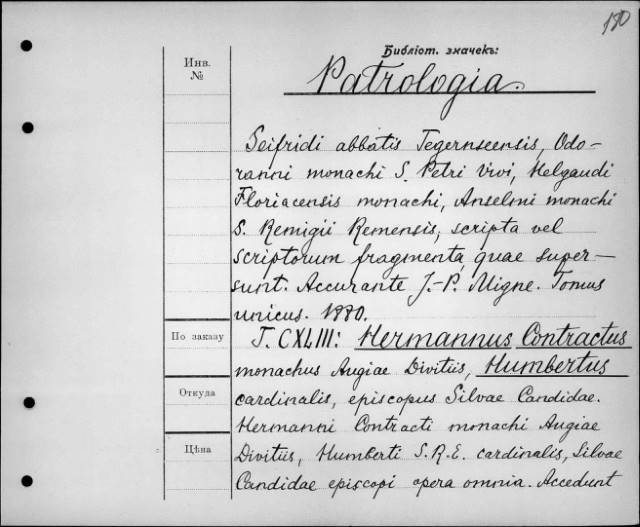 180
Библіот. значекъ:
Инв.
№
Patrologia.
Seifridi abbatis Tegernseensis, Odo-
ranni monachi S. Petri Vivi, Helgaudi
Floriacensis monachi, Anselmi monachi
S. Remigii Remensis, scripta vel
scriptorum fragmenta, quae super-
sunt. Accurante J.-P. Migne. Tomus
unicus. 1880.
По заказу
T. CXLIII: Hermannus Contractus
monachus Augiae Divitiis, Humbertus
Откуда
cardinalis, episcopus Silvae Candidae.
Hermanni Contracti monachi Augiae
Цѣна
Divitiis, Humberti S.R.E. cardinalis, Silvae
Candidae episcopi opera omnia. Accedunt